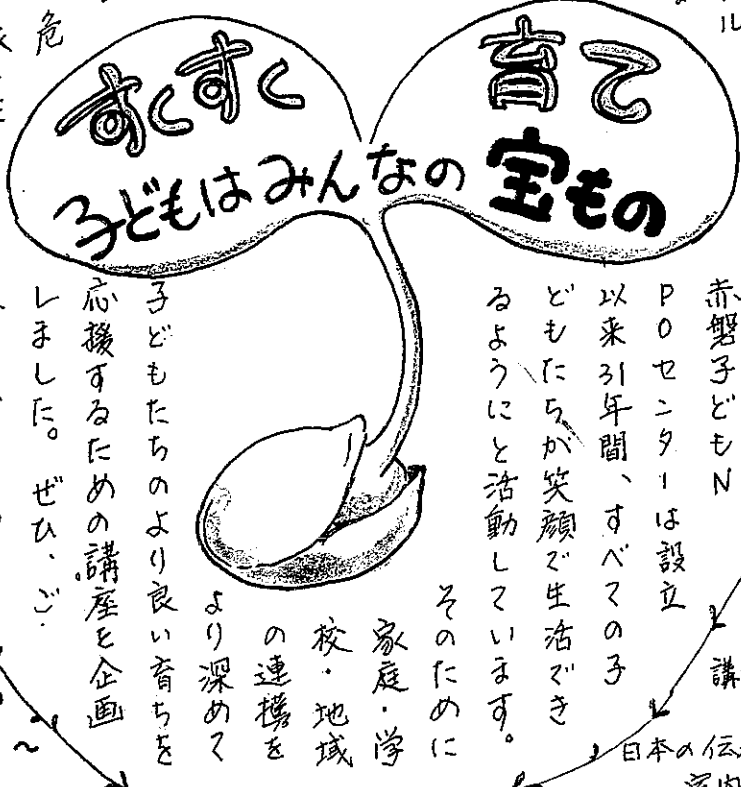 すくすく
育て
子どもはみんなの宝もの
赤磐子どもN
POセンターは設立
以来31年間、すべての子
どもたちが笑顔で生活でき
るようにと活動しています。
そのために
家庭・学
校・地域
の連携を
より深めて
子どもたちのより良い育ちを
応援するための講座を企画
しました。ぜひ、ご
危
ル
講
日本の伝